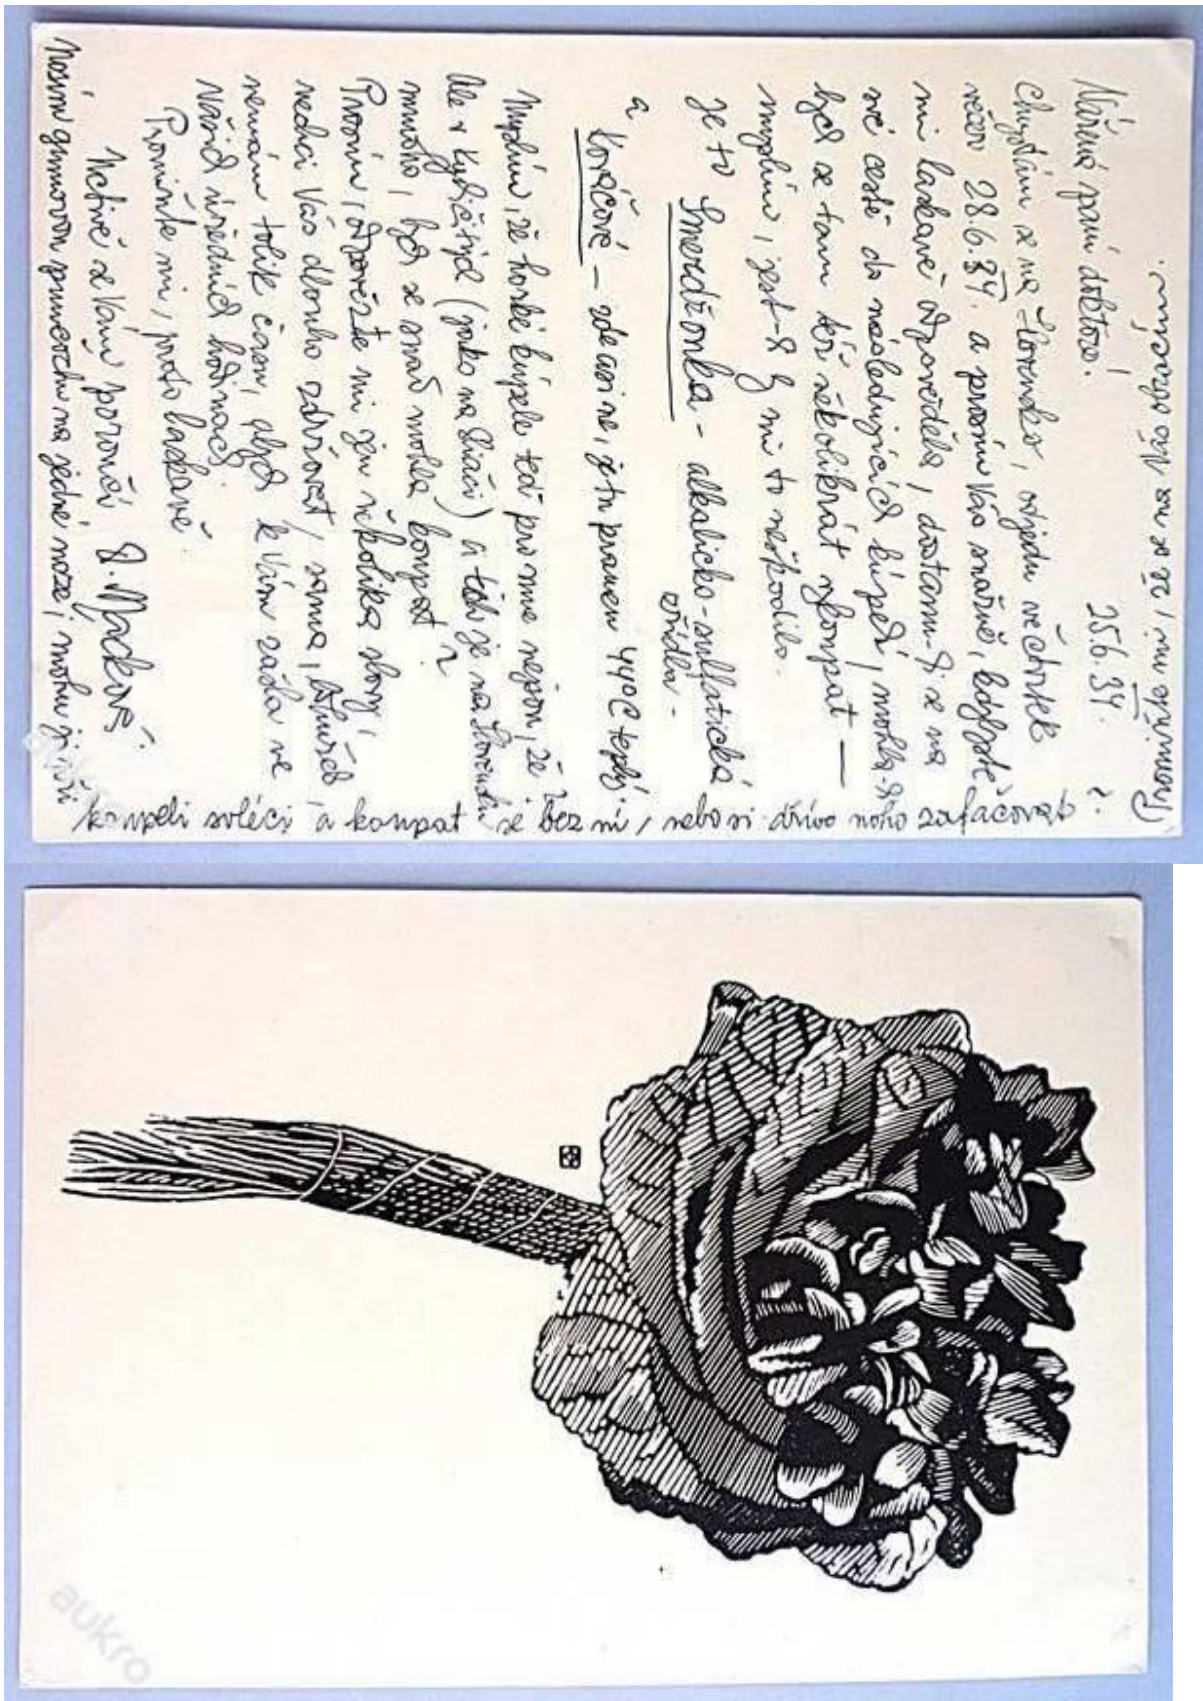 Promiňte mi, že se na Vás obracím.
25.6.34.
Vážená paní doktore!
Chystám se na Slovensko, odjedu ve čtvrtek
večer 28.6.34. a prosím Vás snažně, kdybyste
mi laskavě odpověděla, dostanu-li se na
své cestě do následujících kúpelí, mohla-li
bych se tam též několikrát vykoupat —
myslím, jest-li by mi to neškodilo.
Je to Smerdžonka - alkalicko-sulfatická
vřídla -
a Kováčové - zde asi ne, je tu pramen 44°C teplý.
Myslím, že horké kúpele teď pro mne nejsou, že?
Ale v kyseličitých (jako na Sliači) a těch je na Slovensku
mnoho, bych se snad mohla koupat?
Prosím, odpovězte mi jen několika slovy,
nechci Vás dlouho zdržovat, sama,
nemám tolik času, abych k Vám zašla ve
Vašich úředních hodinách.
Promiňte mi, proto laskavě.
Uctivě se Vám poroučí
Nosím gumovou punčochu na jedné noze, mohu ji při
koupeli svléci a koupat se bez ní, nebo si dřívo nohu zafačovat?
aukro